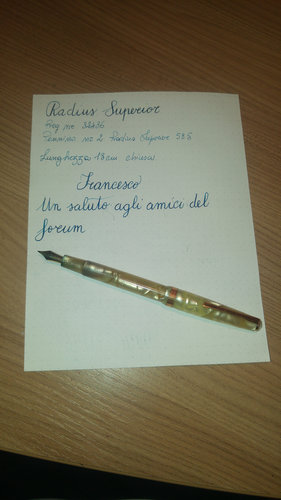 Radius Superior
Pennino no 2 Radius Superior 585
Lunghezza 13 cm chiusa
Francesco
Un saluto agli amici del
forum